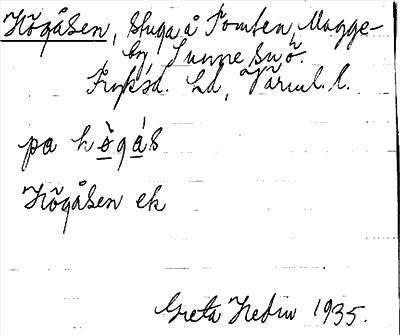 Högåsen, stuga å Tomten, Magge-
by, Sunne sn ö.
Fryksd. hd, Värml. l.
pa hö̀gá̀s
Högåsen ek
Greta Hedin 1935.